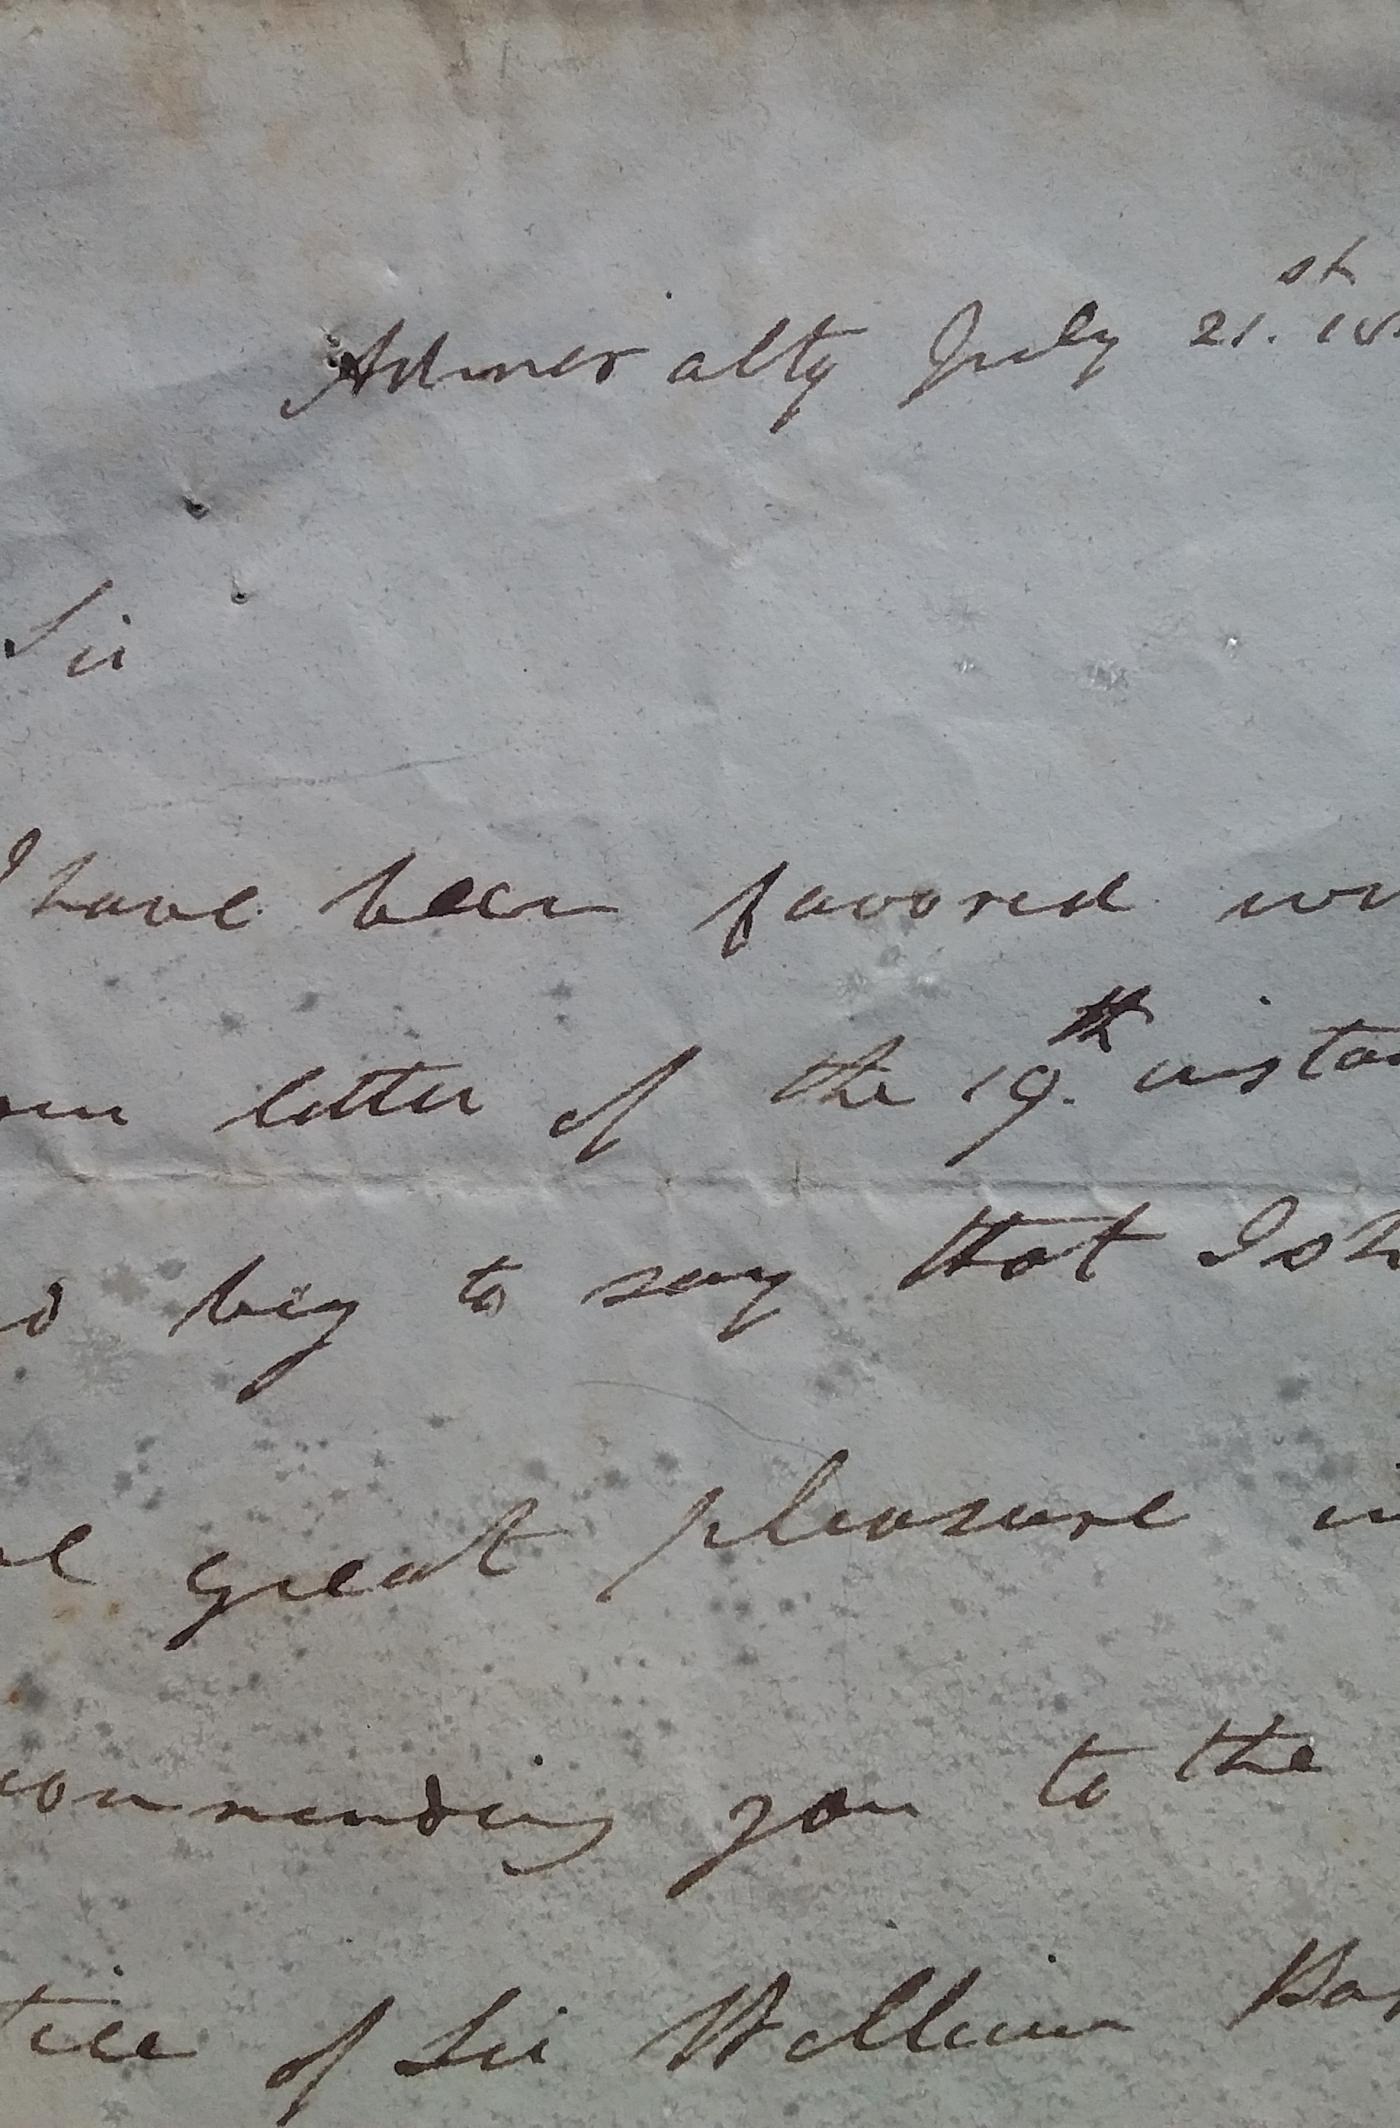 Admiralty July 21.st 18
Sir
I have been favored wi
our letter of the 19.th insta
d beg to say that I sh
ve great pleasure i
commending you to the
tice of Sir William Pa